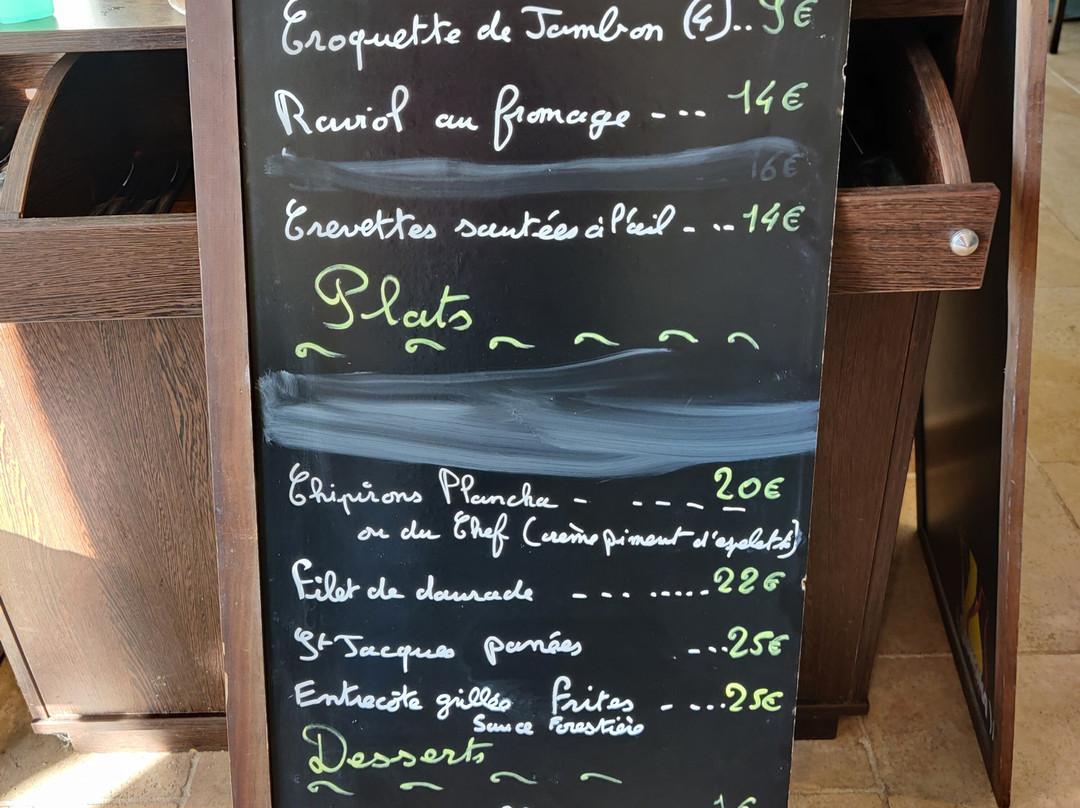 Croquette de Jambon (4).. 9€
Raviol au fromage --- 14€
16€
Crevettes sautées à l'œil - -- 14€
Plats
Chipirons Plancha - --- - 20€
ou du Chef (crème piment d'espelette)
Filet de daurade --- ..... 22€
St Jacques panées -... 25€
Entrecôte grillée frites - -... 25€
Sauce Forestière
Desserts